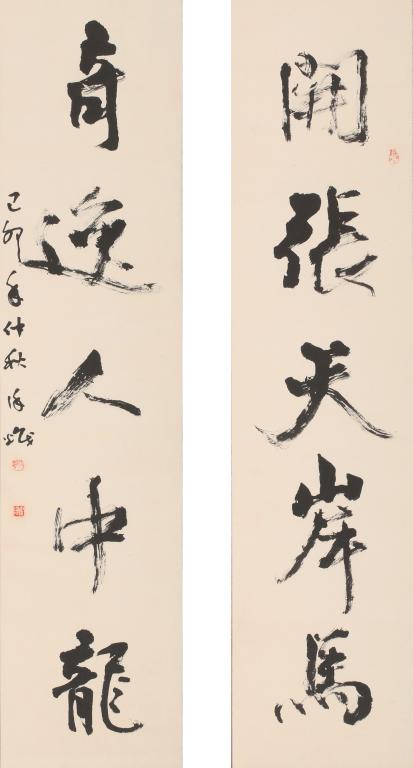 開張天岸馬
奇逸人中龍
己卯年仲秋